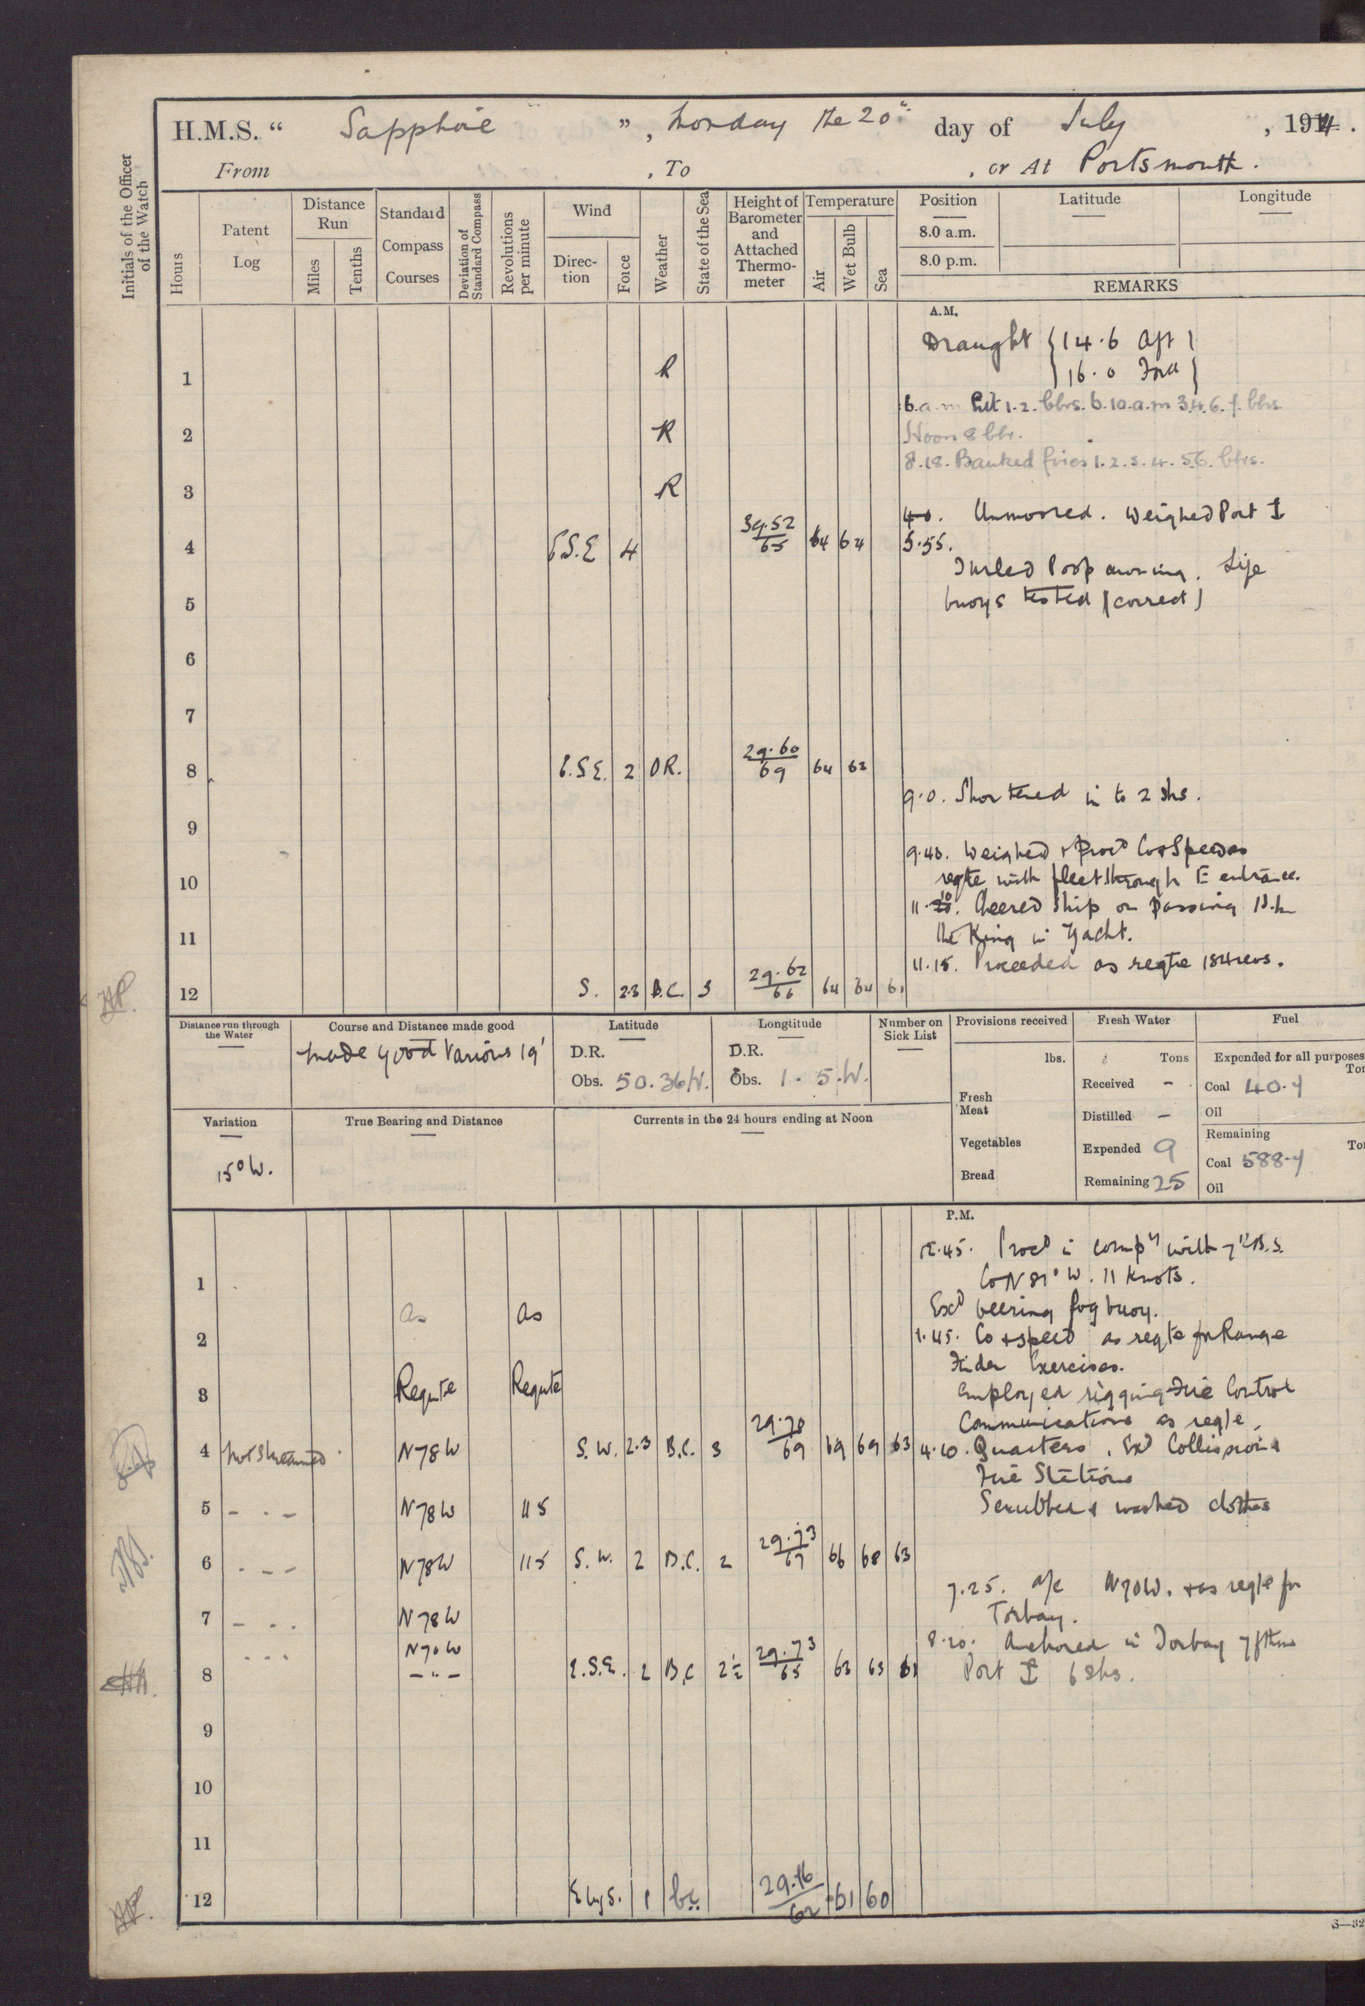 H.M.S. “ Sapphire ”, Monday the 20th day of July, 1914.
From , To , or At Portsmouth.
Initials of the Officer of the Watch
Hours
Patent Log
Distance Run
Miles
Tenths
Standard Compass Courses
Deviation of Standard Compass
Revolutions per minute
Wind
Direc-tion
Force
Weather
State of the Sea
Height of Barometer and Attached Thermo-meter
Temperature
Air
Wet Bulb
Sea
Position
8.0 a.m.
8.0 p.m.
Latitude
Longitude
REMARKS
A.M.
Draught { 14.6 Aft }
{ 16.0 Ford }
1 R
6.a.m Lit 1.2. blrs. 6.10.a.m 3.4.6.7. blrs
2 R
Noon 8 blr.
8.18. Banked fires 1.2.3.4.5.6. blrs.
3 R
4.0. Unmoored. Weighed Port ⚓
4 E.S.E 4 29.52/65 64 64
5.55.
Furled Poop awning. Life
5 buoys tested (correct)
6
7
8 E.S.E. 2 O.R. 29.60/69 64 62
9.0. Shortened in to 2 shs.
9
9.43. Weighed & Procd Co & Speed as
10 reqte with fleet through E entrance.
11.10. Cheered ship on passing H.M
11 the King in Yacht.
11.15. Proceeded as reqte 154 revs.
12 S. 2.3 B.C. 3 29.62/66 64 64 61
Distance run through the Water
Course and Distance made good
Made good Various 19'
Latitude
D.R.
Obs. 50.36 N.
Longtitude
D.R.
Obs. 1. 5. W.
Number on Sick List
Provisions received
lbs.
Fresh Meat
Vegetables
Bread
Fresh Water
Tons
Received –
Distilled –
Expended 9
Remaining 25
Fuel
Expended for all purposes
Coal 40.7
Oil
Remaining
Coal 588.7
Oil
Variation
15° W.
True Bearing and Distance
Currents in the 24 hours ending at Noon
P.M.
12.45. Procd in compy with 7th B.S.
1 Co N 81° W. 11 Knots.
as as Exd veering fog buoy.
2 1.45. Co & speed as reqte for Range
Finder Exercises.
3 Requte Requte Employed rigging Fire Control
Communications as reqte.
4 Not Streamed N 78 W S.W. 2.3 B.C. 3 29.70/69 69 69 63 4.10. Quarters. Exd Collision &
Fire Stations
5 – . – N 78 W 115 Scrubbed & washed clothes
6 – – – N 78 W 115 S.W. 2 B.C. 2 29.73/67 66 68 63
7.25. a/c N 70 W. & as reqte for
7 – . . N 78 W Torbay.
N 70 W 8.20. Anchored in Torbay 7 fthms
8 – " – E.S.E. 2 B.C 2½ 29.73/65 63 63 61 Port ⚓ 6 shs.
9
10
11
12 E by S. 1 bc 29.76/62 61 60